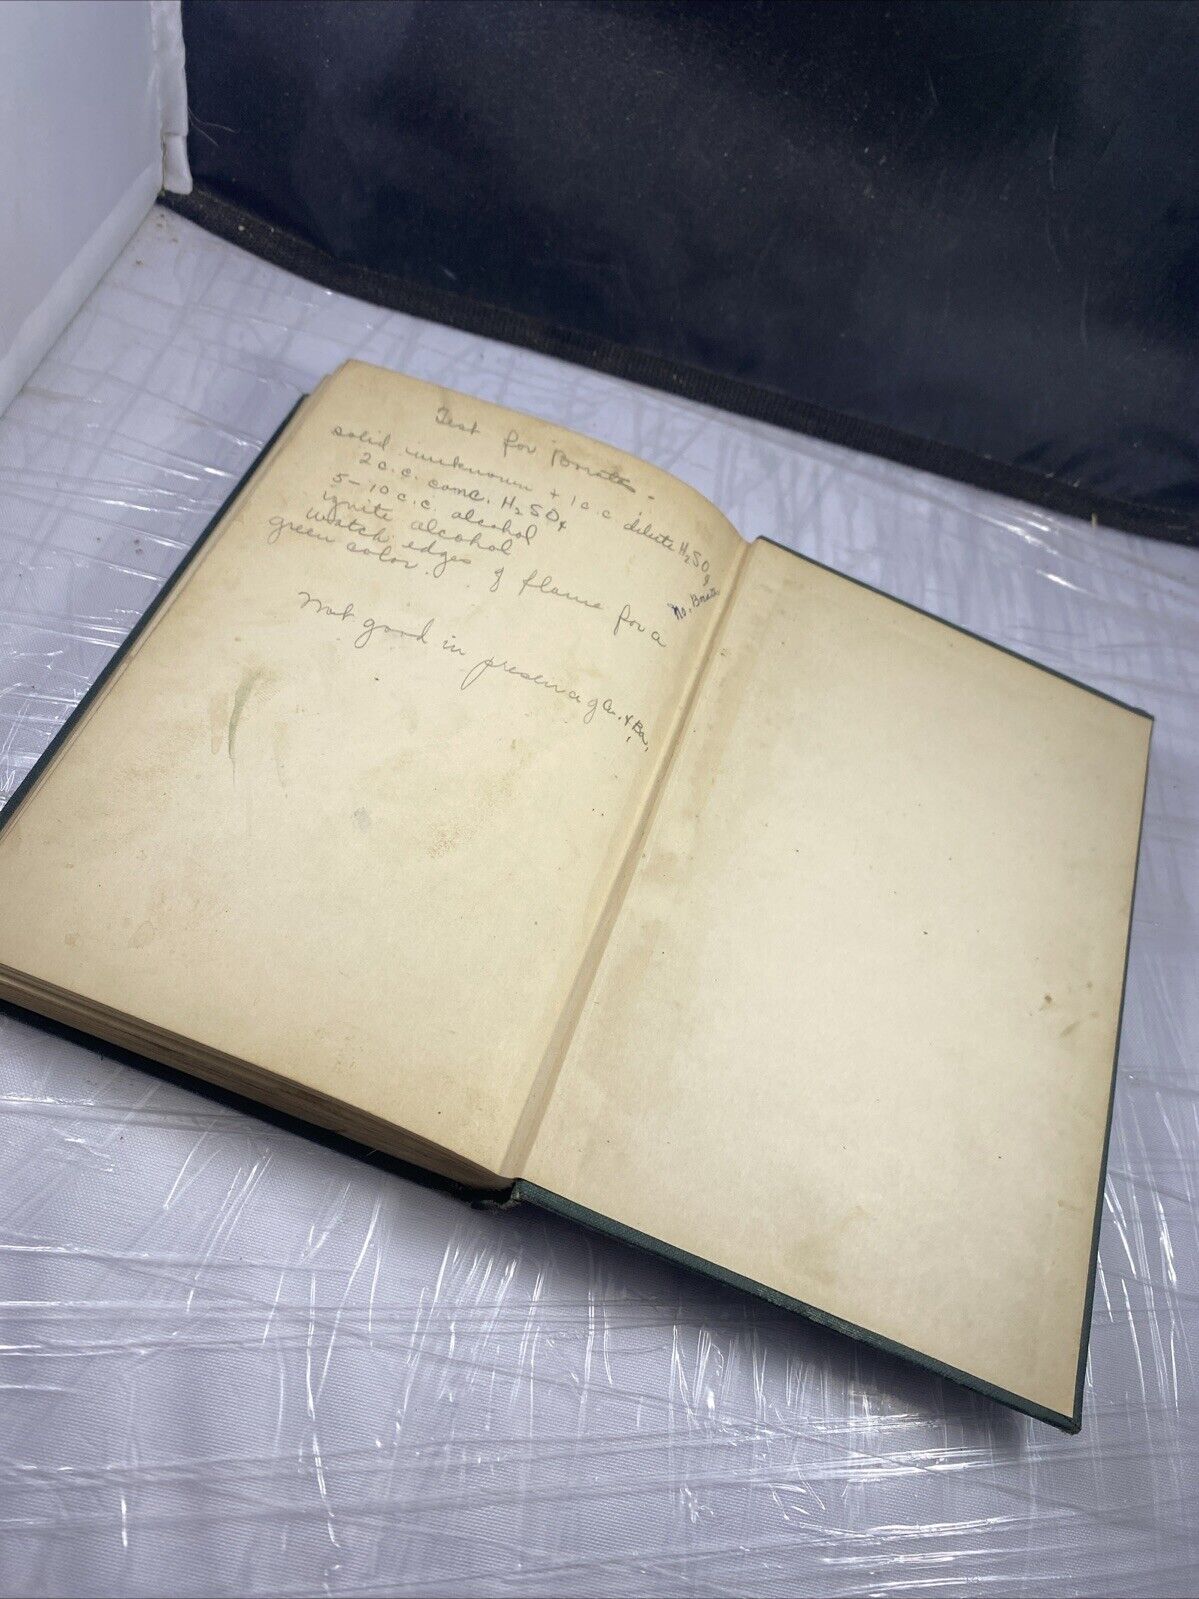 Test for Borate.
solid unknown + 1 c.c dilute H2SO4
2 c.c. conc. H2SO4
5-10 c.c. alcohol
ignite alcohol
watch edges of flame for a
green color.
Not good in presence of Cu. & Ba.